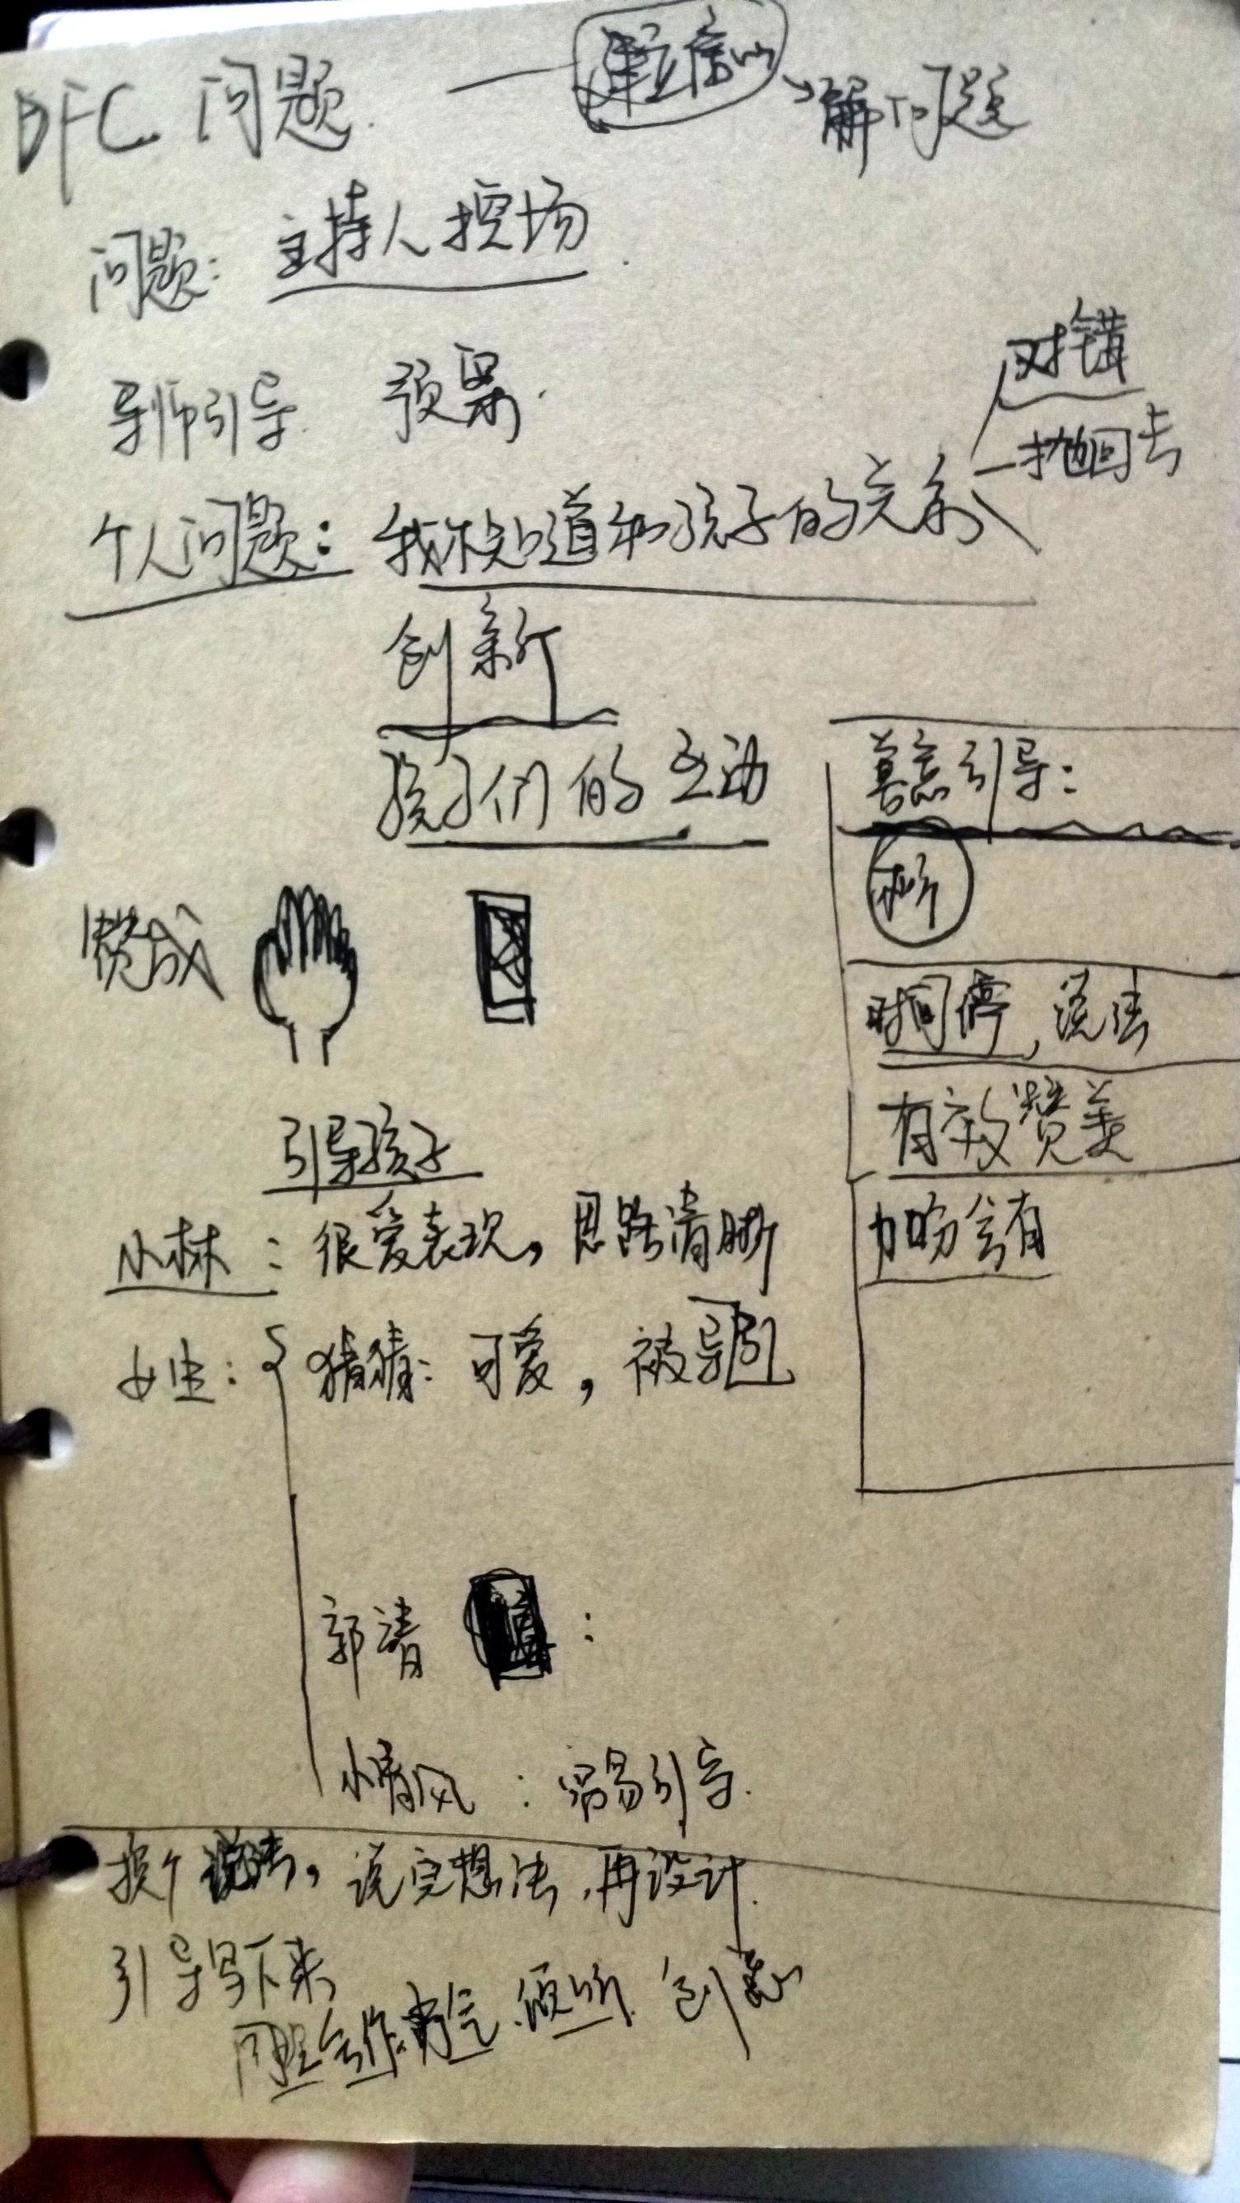 DFC 问题 — 解问题
问题：主持人控场
导师引导 预
对错
抛回去
个人问题：我不知道和孩子的关系
创新
孩子们的互动
引导：
赞成
时间停，说法
有效赞美
引导孩子
加 会有
小林：很爱表现，思路清晰
女生：猜猜：可爱，被导引
郭清 ：
小清风：容易引导.
换个说法，说完想法，再设计.
引导写下来
合作.勇气.倾听.创意